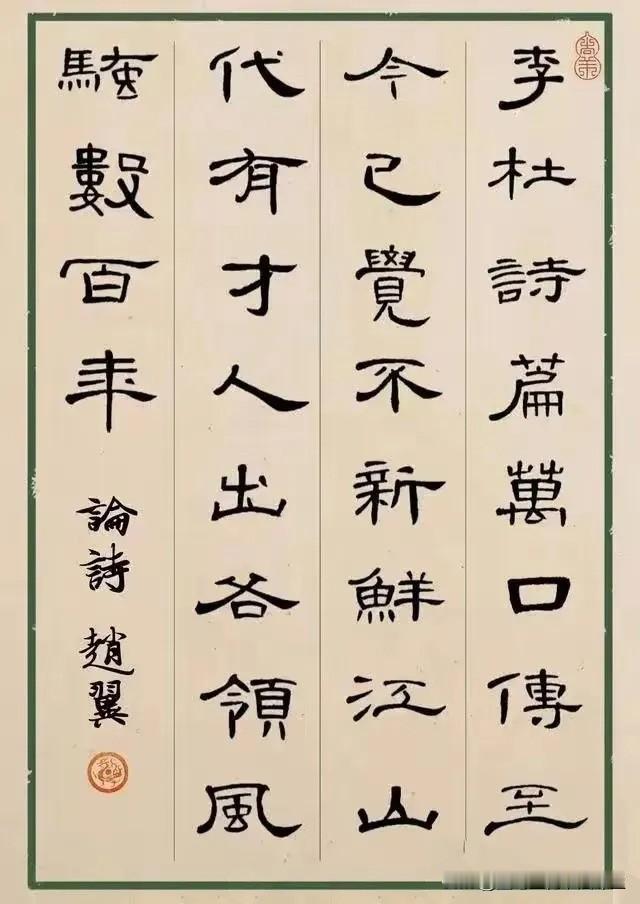 李杜詩篇萬口傳至
今已覺不新鮮江山
代有才人出各領風
騷數百年
論詩 趙翼